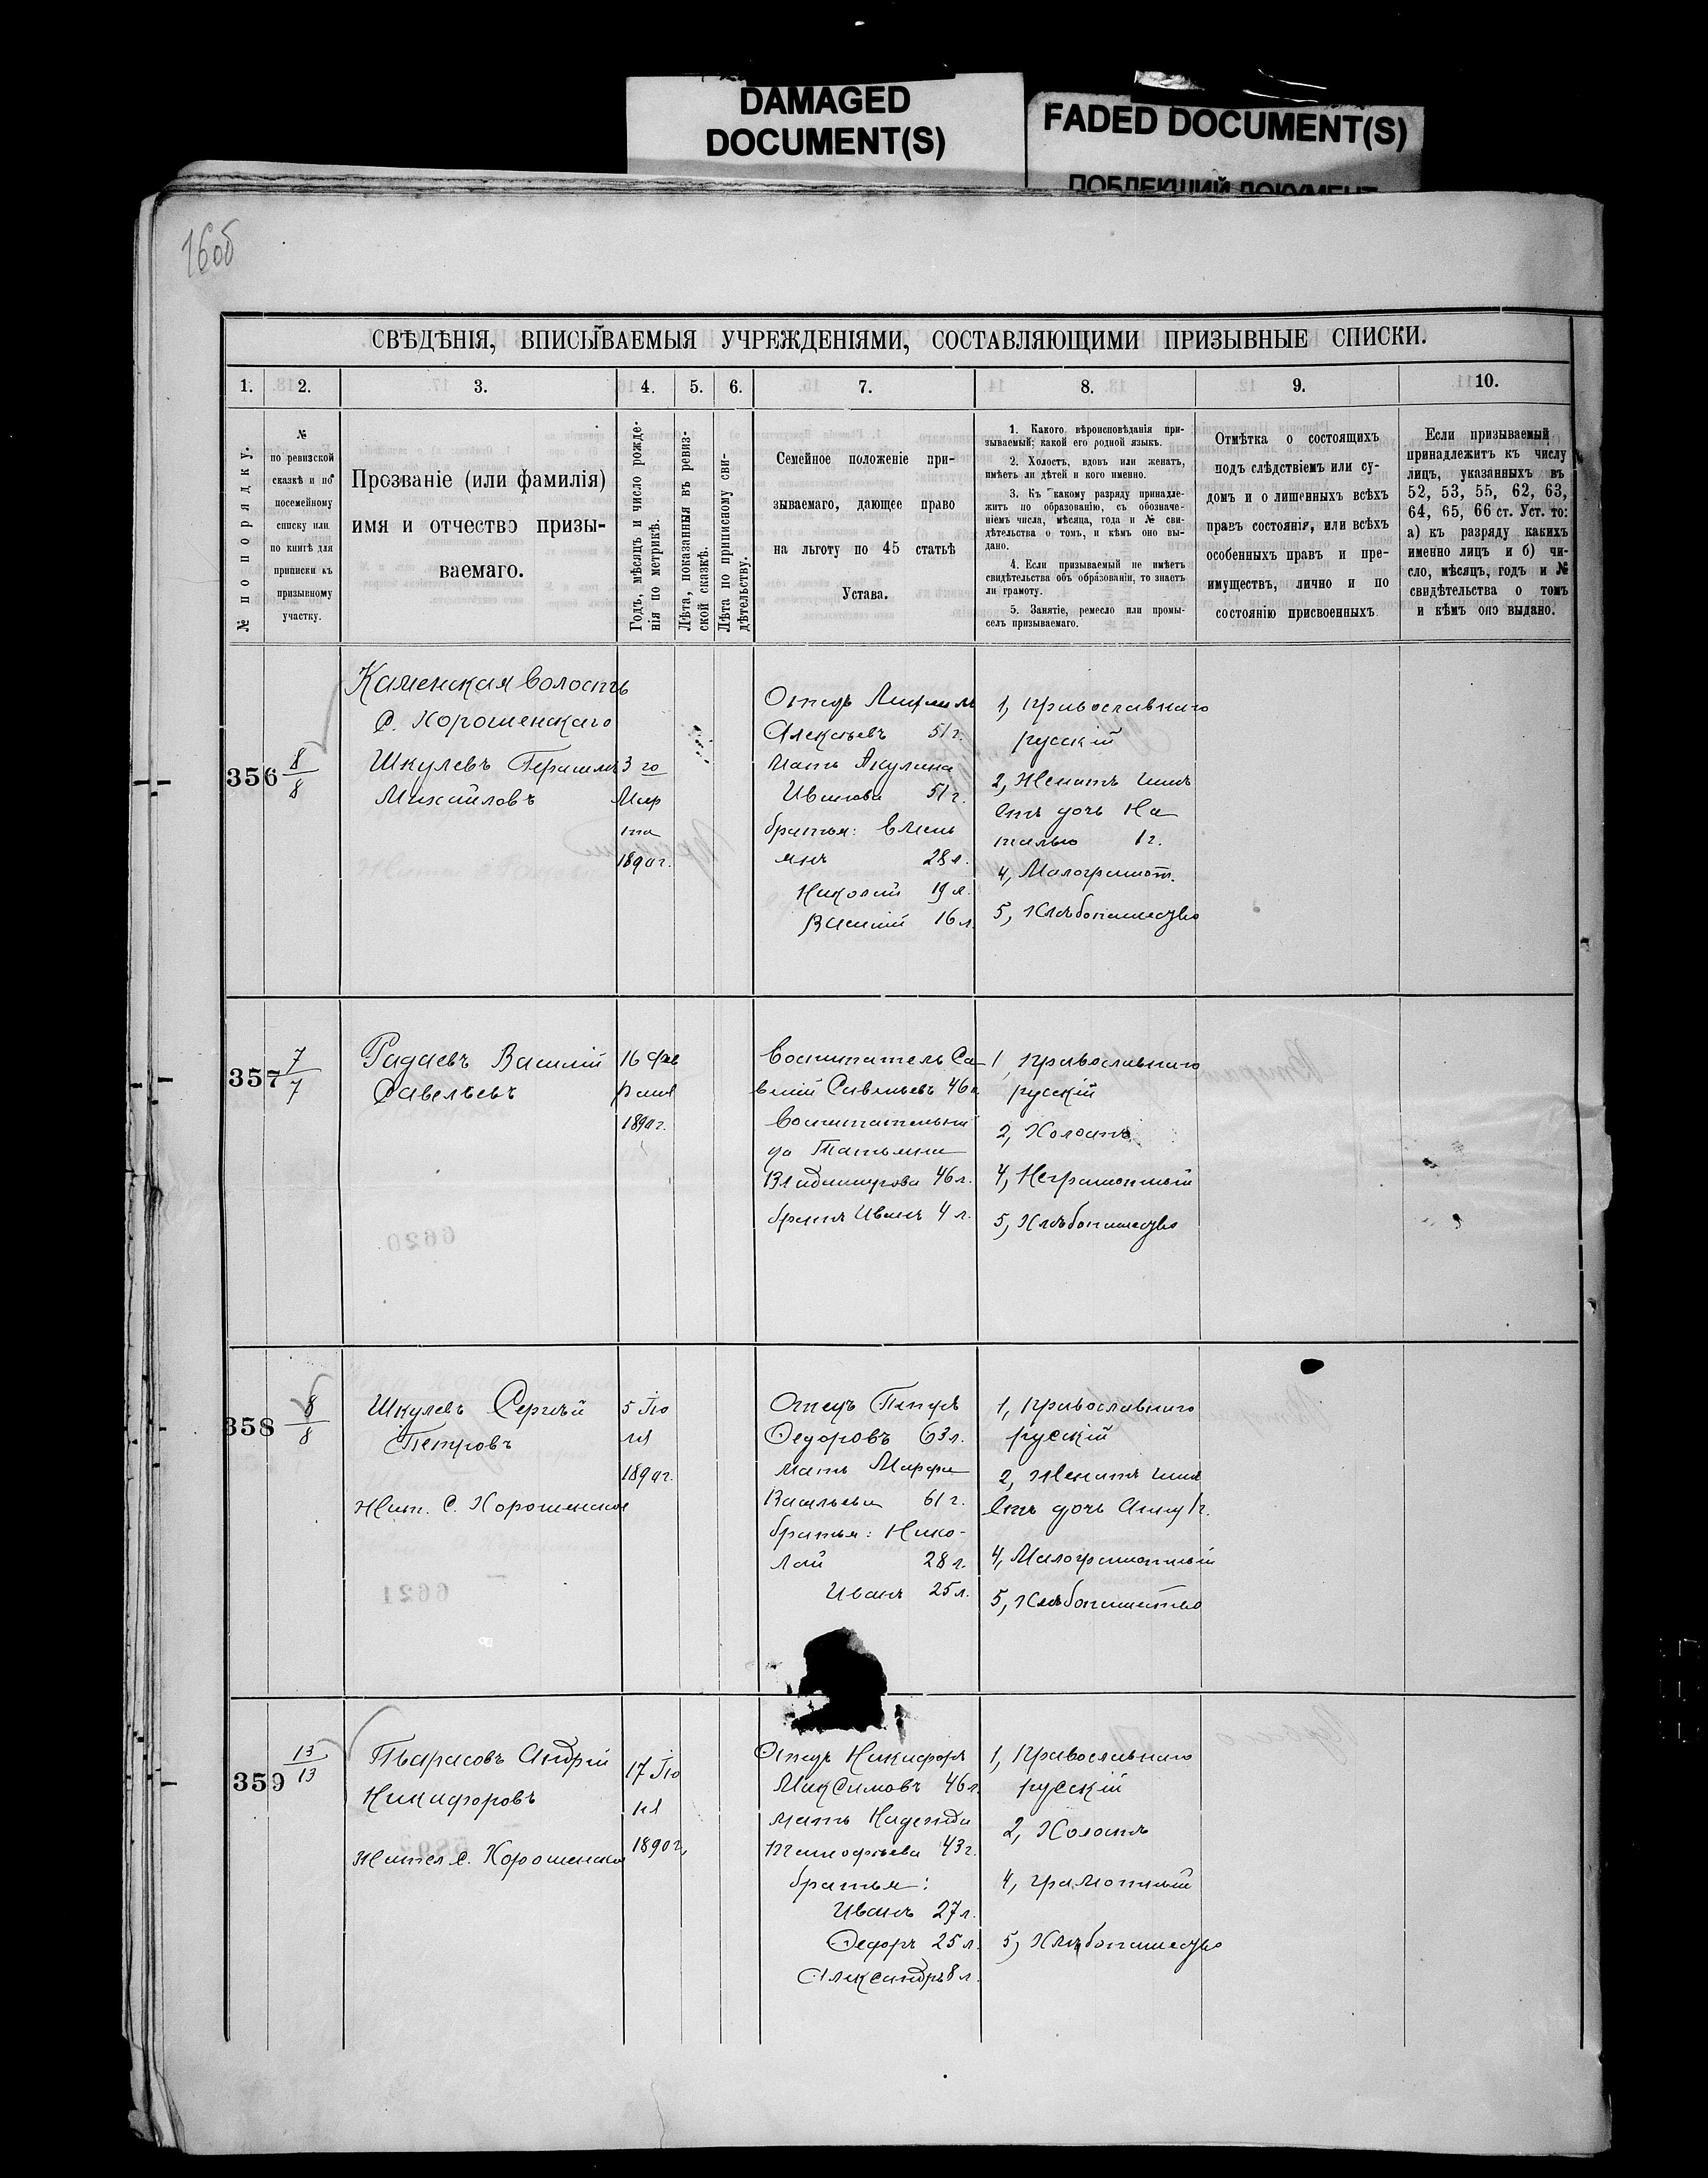 DAMAGED
DOCUMENT(S)
FADED DOCUMENT(S)
ПОБЛЕКШИЙ ДОКУМЕНТ
16об
СВѢДѢНІЯ, ВПИСЫВАЕМЫЯ УЧРЕЖДЕНІЯМИ, СОСТАВЛЯЮЩИМИ ПРИЗЫВНЫЕ СПИСКИ.
1. 2. 3. 4. 5. 6. 7. 8. 9. 10.
№ по порядку.
№
по ревизской
сказкѣ и по
посемейному
списку или
по книгѣ для
приписки къ
призывному
участку.
Прозваніе (или фамилія)
имя и отчество призы-
ваемаго.
Годъ, мѣсяцъ и число рожде-
нія по метрикѣ.
Лѣта, показанныя въ ревиз-
ской сказкѣ.
Лѣта по приписному сви-
дѣтельству.
Семейное положеніе при-
зываемаго, дающее право
на льготу по 45 статьѣ
Устава.
1. Какого вѣроисповѣданія при-
зываемый; какой его родной языкъ.
2. Холостъ, вдовъ или женатъ,
имѣетъ ли дѣтей и кого именно.
3. Къ какому разряду принадле-
житъ по образованію, съ обозначе-
ніемъ числа, мѣсяца, года и № сви-
дѣтельства о томъ, и кѣмъ оно вы-
дано.
4. Если призываемый не имѣетъ
свидѣтельства объ образованіи, то знаетъ
ли грамоту.
5. Занятіе, ремесло или промы-
селъ призываемаго.
Отмѣтка о состоящихъ
подъ слѣдствіемъ или су-
домъ и о лишенныхъ всѣхъ
правъ состоянія, или всѣхъ
особенныхъ правъ и пре-
имуществъ, лично и по
состоянію присвоенныхъ
Если призываемый
принадлежитъ къ числу
лицъ, указанныхъ въ
52, 53, 55, 62, 63,
64, 65, 66 ст. Уст. то:
а) къ разряду какихъ
именно лицъ и б) чи-
сло, мѣсяцъ, годъ и №
свидѣтельства о томъ
и кѣмъ оно выдано.
356
8
8
Каменская волость
С. Хорошенскаго
Шкулевъ Герасимъ
Михайловъ
3 го
Мар
та
1890 г.
Отецъ
Алексѣевъ 51 г.
Мать Акулина
Иванова 51 г.
братья: Емель
янъ 28 л.
Николай 19 л.
Василій 16 л.
1, Православнаго
русскій
2, Женатъ имѣ
етъ дочь На
талью 1 г.
4, Малограмот.
5, Хлѣбопашество
357
7
7
Радаевъ Василій
Савельевъ
16 Фев
раля
1890 г.
Воспитатель Са
велій Савельевъ 46 л
Воспитательни
ца Татьяна
Владимирова 46 л.
братъ Иванъ 4 л.
1, Православнаго
русскій
2, Холостъ
4, Неграмотный
5, Хлѣбопашество
358
8
8
Шкулевъ Сергѣй
Петровъ
Жит. С. Хорошенскаго
5 Ію
ля
1890 г.
Отецъ Петръ
Федоровъ 63 л.
Мать Марфа
Васильева 61 г.
братья: Нико-
лай 28 л.
Иванъ 25 л.
1, Православнаго
русскій
2, Женатъ имѣ
етъ дочь Анну 1 г.
4, Малограмотный
5, Хлѣбопашество
359
13
13
Тарасовъ Андрей
Никифоровъ
Жител. С. Хорошенскаго
17 Ію
1890 г.
Отецъ Никифоръ
Максимовъ 46 л
Мать Надежда
Тимофѣева 43 г.
братья:
Иванъ 27 л.
Федоръ 25 л.
Александръ 8 л.
1, Православнаго
русскій
2, Холостъ
4, грамотный
5, Хлѣбопашество